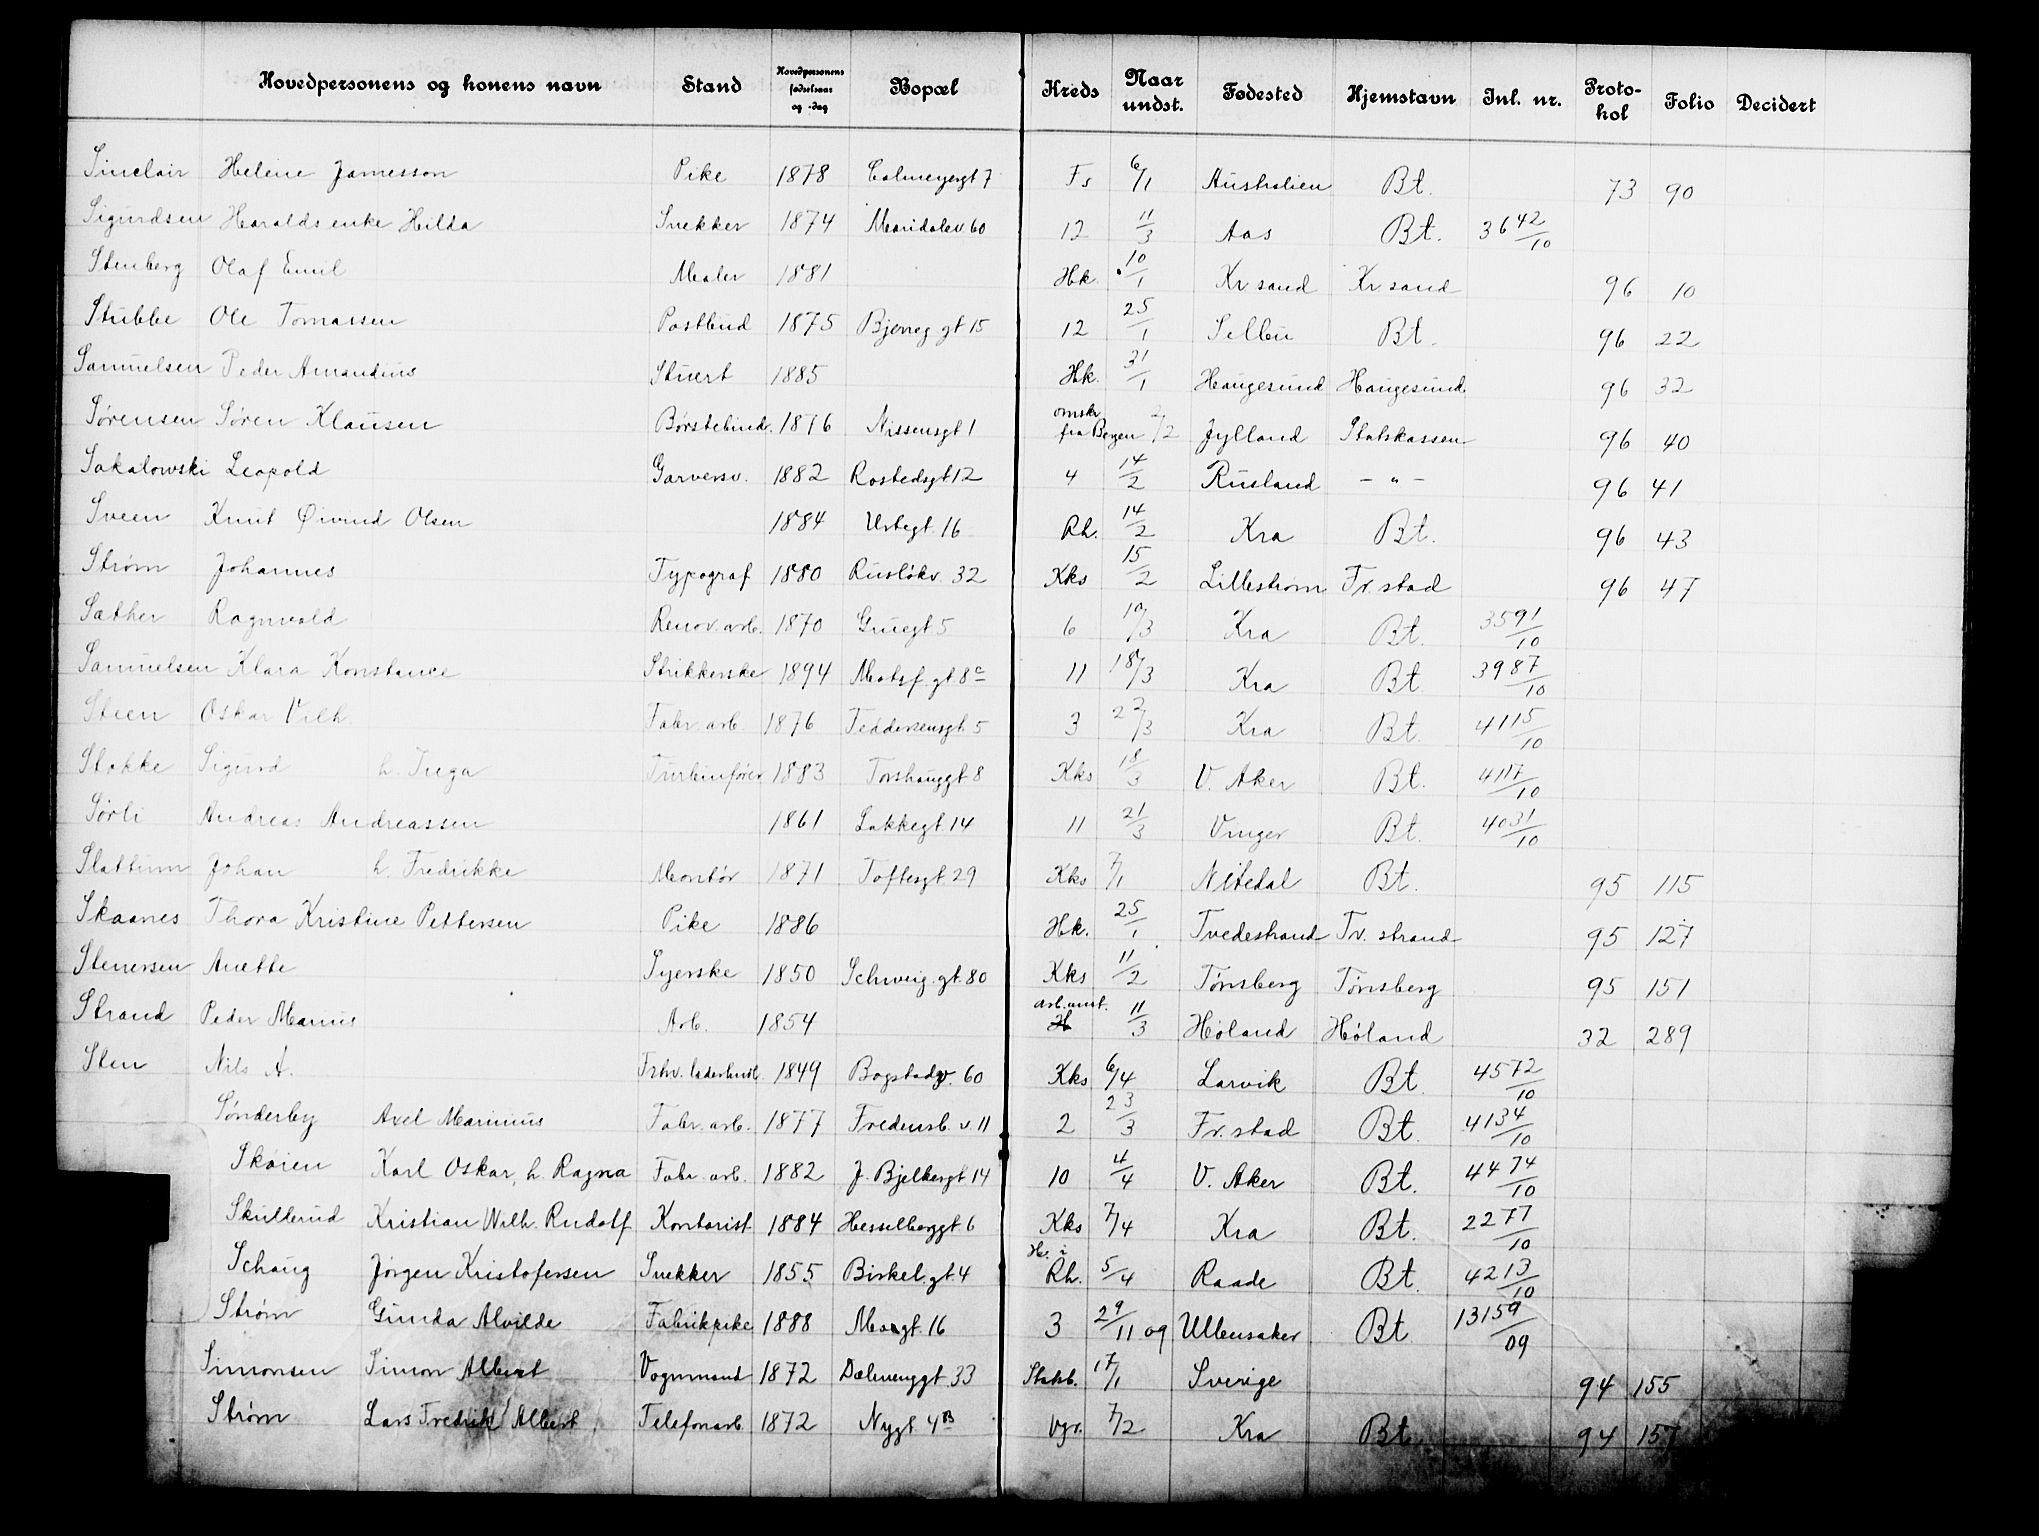 Hovedpersonens og konens navn Stand Hovedpersonens fødselsaar og -dag Bopæl Kreds Naar undst. Fødested Hjemstavn Inl. nr. Protokol Folio Decidert
Sinclair Helene Jamesson Pike 1878 Calmeyergt 7 Fs 6/1 Australien Bt. 73 90
Sigurdsen Haralds enke Hilda Snekker 1874 Maridalsv 60 12 11/3 Aas Bt. 3642/10
Stenberg Olaf Emil Maler 1881 Hk. 10/1 Kr sand Kr sand 96 10
Stubbe Ole Tomassen Postbud 1875 Bjerreg gt 15 12 25/1 Selbu Bt. 96 22
Samuelsen Peder Amandius Stuert 1885 Hk. 31/1 Haugesund Haugesund 96 32
Sørensen Søren Klausen Børstebind. 1876 Nissensgt 1 omskr. fra Bergen 2/2 Jylland Statskassen 96 40
Sakalowski Leopold Garversv. 1882 Rostedsgt 12 4 14/2 Rusland – " – 96 41
Sveen Knut Øivind Olsen 1884 Urtegt. 16 Rh. 14/2 Kra Bt. 96 43
Strøm Johannes Typograf 1880 Rusløkv. 32 Kks 15/2 Lillestrøm Fr. stad 96 47
Sæther Ragnvald Renov. arb. 1870 Gruegt 5 6 10/3 Kra Bt. 3591/10
Samuelsen Klara Konstance Strikkerske 1894 Motsf. gt 8c 11 18/3 Kra Bt. 3987/10
Steen Oskar Vilh. Fabr. arb. 1876 Feddersensgt. 5 3 22/3 Kra Bt. 4115/10
Stokke Sigurd h. Inga Turbinfører 1883 Torshauggt 8 Kks 18/3 V. Aker Bt. 4117/10
Sørli Andreas Andreassen 1861 Lakkegt. 14 11 21/3 Vinger Bt. 4031/10
Slattum Johan h. Fredrikke Montør 1871 Toftesgt. 29 Kks 7/1 Nitedal Bt. 95 115
Skaanes Thora Kristine Pettersen Pike 1886 Hk. 25/1 Tvedestrand Tv. strand 95 127
Stenersen Anette Syerske 1850 Schweig. gt. 80 Kks 11/2 Tønsberg Tønsberg 95 151
Strand Peder Marius Arb. 1854 arb. anst. H 11/3 Høland Høland 32 289
Sten Nils A. Frhv. laderbest. 1849 Bogstadv. 60 Kks 6/4 Larvik Bt. 4572/10
Sønderby Axel Marinius Fabr. arb. 1877 Fredensb. v. 11 2 23/3 Fr. stad Bt. 4134/10
Skøien Karl Oskar, h. Ragna Fabr. arb. 1882 J. Bjelkesgt 14 10 4/4 V. Aker Bt. 4474/10
Skullerud Kristian Wilh. Rudolf Kontorist 1884 Hesselberggt. 6 Kks 7/4 Kra Bt. 2277/10
Schaug Jørgen Kristofersen Snekker 1855 Birkel. gt. 4 Hv. i Rh. 5/4 Raade Bt. 4213/10
Strøm Gunda Alvilde Fabrikpike 1888 Mosgt. 16 3 29/11 09 Ullensaker Bt. 13159/09
Simonsen Simon Albert Vognmand 1872 Dælenenggt. 33 17/1 Sverige 94 155
Strøm Lars Fredrik Albert Telefonarb. 1872 Nygt 4B Vgr. 7/2 Kra Bt. 94 157